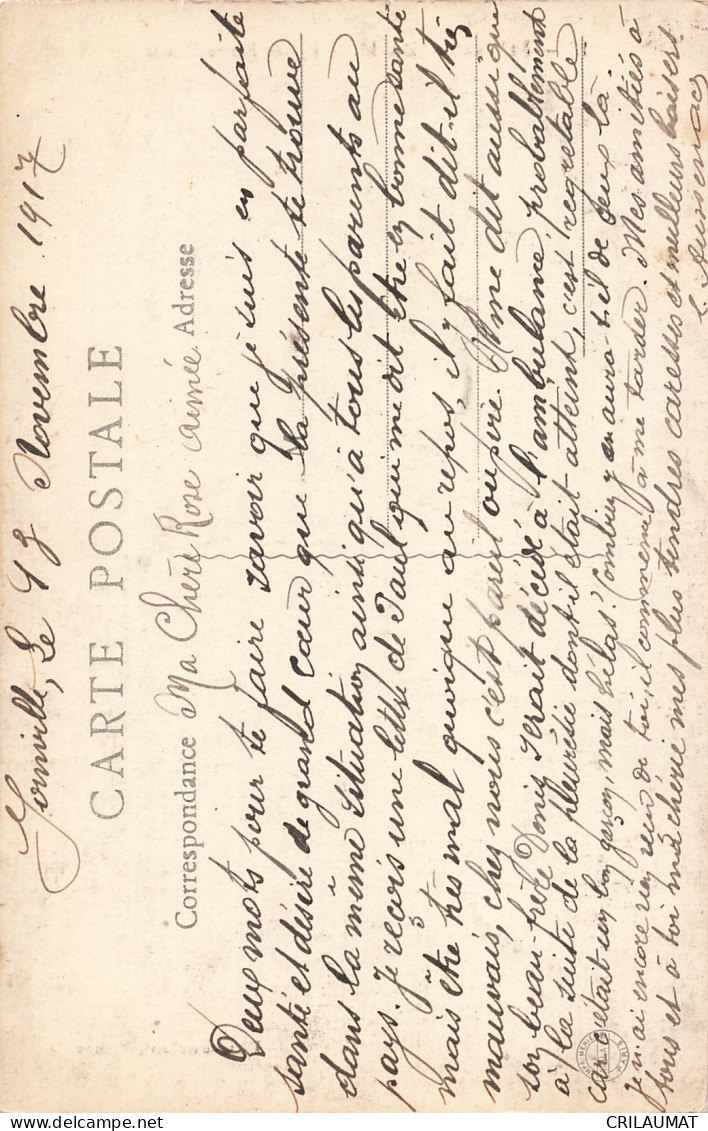 Joinville, Le 23 Novembre 1917
CARTE POSTALE
Correspondance Ma Chère Rose aimée Adresse
Deux mots pour te faire savoir que je suis en parfaite
santé et désire de grand cœur que la présente te trouve
dans la même situation ainsi qu'à tous les parents au
pays. Je reçois une lettre de Paul qui me dit être en bonne santé
mais être très mal quoique au repos, il y fait dit-il très
mauvais, chez nous c'est pareil ou pire. Il me dit aussi que
son beau-frère Doniz serait décidé à l'ambulance probablement
à la suite de la pleurésie dont il était atteint, c'est regretable
car c'était un bon garçon, mais hélas! Combien y en aura-t-il de ceux là.
Je n'ai encore rien reçu de toi, il commence à me tarder. Mes amitiés à
tous et à toi ma chérie mes plus tendres caresses et meilleurs baisers.
CRILAUMAT